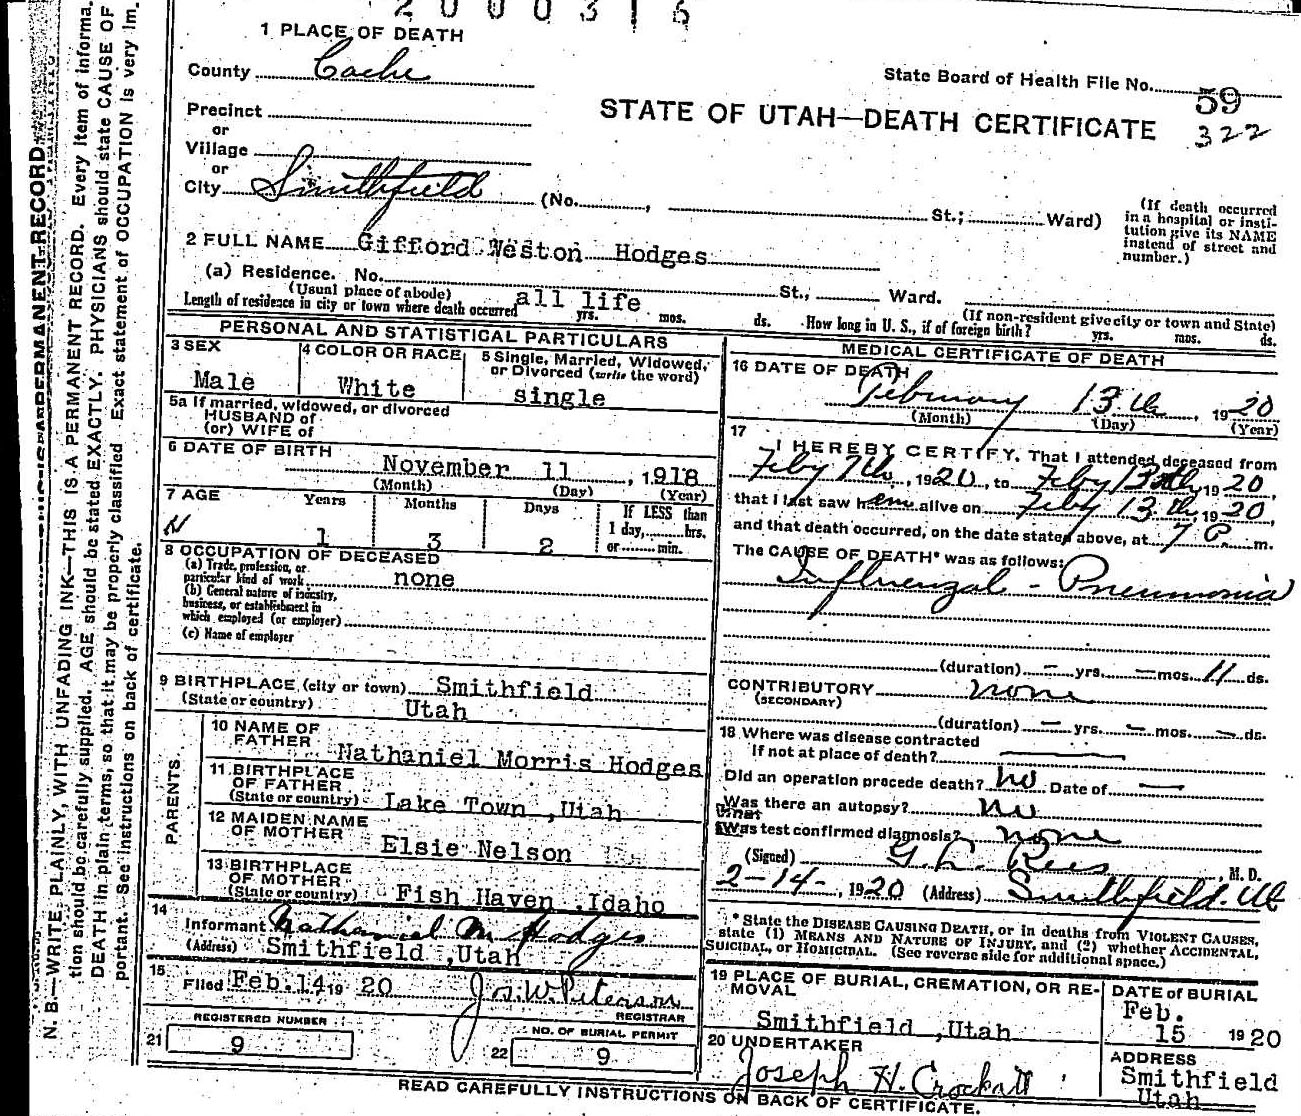 2 0 0 0 3 1 6
1 PLACE OF DEATH
County Cache
State Board of Health File No. 59
322
STATE OF UTAH—DEATH CERTIFICATE
Precinct
or
Village
or
City Smithfield (No. , St.; Ward)
(If death occurred in a hospital or institution give its NAME instead of street and number.)
2 FULL NAME Gifford Weston Hodges
(a) Residence. No. St., Ward.
(Usual place of abode)
(If non-resident give city or town and State)
Length of residence in city or town where death occurred all life yrs. mos. ds. How long in U. S., if of foreign birth? yrs. mos. ds.
PERSONAL AND STATISTICAL PARTICULARS
3 SEX
Male
4 COLOR OR RACE
White
5 Single, Married, Widowed, or Divorced (write the word)
single
5a If married, widowed, or divorced
HUSBAND of
(or) WIFE of
6 DATE OF BIRTH
November 11, 1918
(Month) (Day) (Year)
7 AGE
Years Months Days
If LESS than 1 day, hrs. or min.
1 3 2
8 OCCUPATION OF DECEASED
(a) Trade, profession, or particular kind of work none
(b) General nature of industry, business, or establishment in which employed (or employer)
(c) Name of employer
9 BIRTHPLACE (city or town) Smithfield
(State or country) Utah
PARENTS
10 NAME OF FATHER Nathaniel Morris Hodges
11 BIRTHPLACE OF FATHER
(State or country) Lake Town ,Utah
12 MAIDEN NAME OF MOTHER Elsie Nelson
13 BIRTHPLACE OF MOTHER
(State or country) Fish Haven ,Idaho
14
Informant Nathaniel M Hodges
(Address) Smithfield ,Utah
15
Filed Feb. 14 19 20 Jos. W. Peterson
REGISTRAR
REGISTERED NUMBER
21 9
NO. OF BURIAL PERMIT
22 9
MEDICAL CERTIFICATE OF DEATH
16 DATE OF DEATH
February 13th, 1920
(Month) (Day) (Year)
17
I HEREBY CERTIFY, That I attended deceased from
Feby 7th, 1920, to Feby 13th, 1920,
that I last saw h em alive on Feby 13th, 1920,
and that death occurred, on the date stated above, at 7 P. m.
The CAUSE OF DEATH* was as follows:
Influenzal - Pneumonia
(duration) — yrs. — mos. 11 ds.
CONTRIBUTORY none
(SECONDARY)
(duration) — yrs. — mos. — ds.
18 Where was disease contracted
If not at place of death? —
Did an operation precede death? no Date of —
Was there an autopsy? no
What
Was test confirmed diagnosis? none
(Signed) G. L. Rees, M. D.
2-14-, 1920 (Address) Smithfield. Ut
* State the DISEASE CAUSING DEATH, or in deaths from VIOLENT CAUSES,
state (1) MEANS AND NATURE OF INJURY, and (2) whether ACCIDENTAL,
SUICIDAL, or HOMICIDAL. (See reverse side for additional space.)
19 PLACE OF BURIAL, CREMATION, OR REMOVAL
Smithfield ,Utah
DATE of BURIAL
Feb. 15 1920
20 UNDERTAKER
Joseph H. Crockett
ADDRESS
Smithfield
Utah
READ CAREFULLY INSTRUCTIONS ON BACK OF CERTIFICATE.
N. B.—WRITE PLAINLY, WITH UNFADING INK—THIS IS A PERMANENT RECORD. Every item of informa-
tion should be carefully supplied. AGE should be stated EXACTLY. PHYSICIANS should state CAUSE OF
DEATH in plain terms, so that it may be properly classified. Exact statement of OCCUPATION is very im-
portant. See instructions on back of certificate.